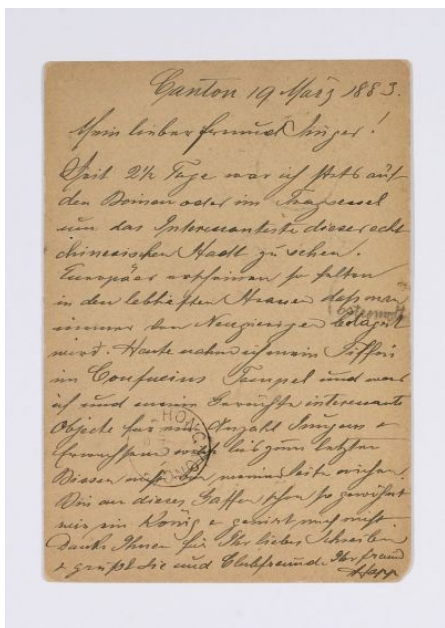 Canton 19 März 1883.
Mein lieber Freund Unger!
Seit 2½ Tage war ich stets auf
den Beinen oder im Tragsessel
um das Interessanteste dieser echt
chinesischen Stadt zu sehen.
Europäer erscheinen so selten
in den lebhaften Strassen daß man
immer von Neugierigen belagert
wird. Heute nahm ich mein Tiffin
im Confucius Tempel und war
ich und meine Gerüchte interessante
Objecte für eine Anzahl Jungens &
Erwachsene die bis zum letzten
Bissen nicht von meiner Seite wichen.
Bin an dieses Gaffen schon so gewöhnt
wie ein König & genirt mich nicht.
Danke Ihnen für Ihr liebes Schreiben
& grüße Sie und Clubfreunde. Ihr Freund
HONGKONG